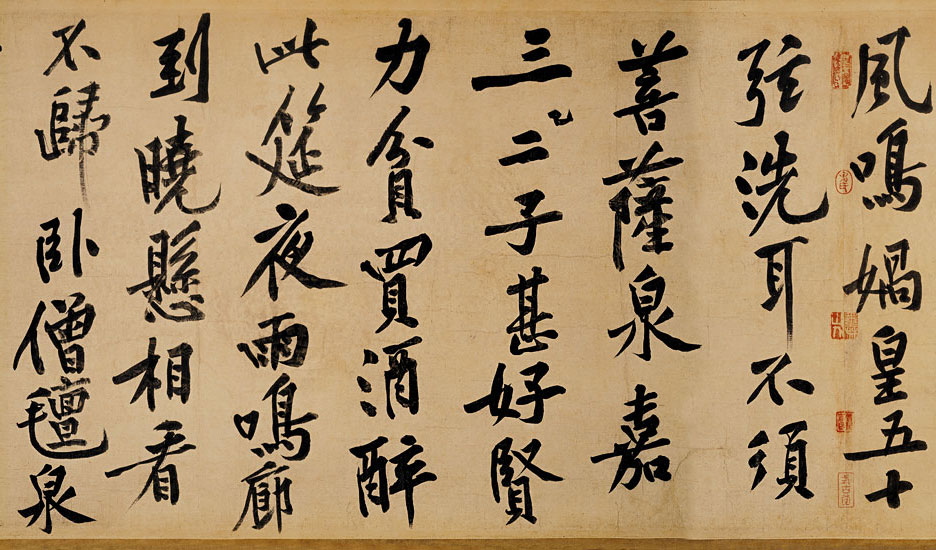 風鳴媧皇五十
弦洗耳不須
菩薩泉嘉
三二子甚好賢
力貧買酒醉
此筵夜雨鳴廊
到曉懸相看
不歸卧僧氈泉